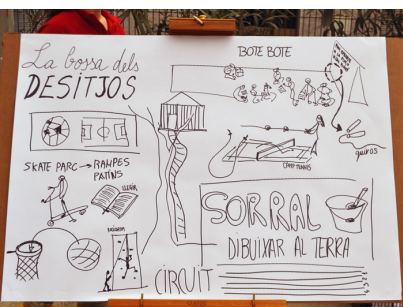 La bossa dels
DESITJOS
BOTE BOTE
SKATE PARC → RAMPES
PATINS
LLEGIR
CAMP TENNIS
guixos
SORRAL
DIBUIXAR AL TERRA
CIRCUIT